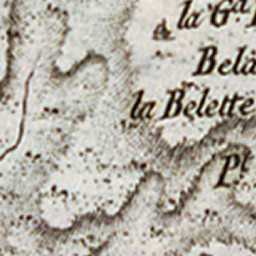 à la G.d
Bela
la Belette
P.t